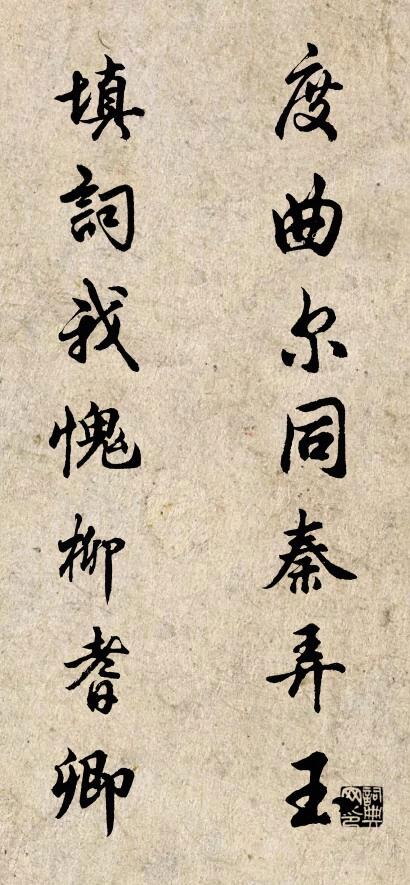 度曲尔同秦弄玉
填詞我愧柳耆卿
詞典
网印